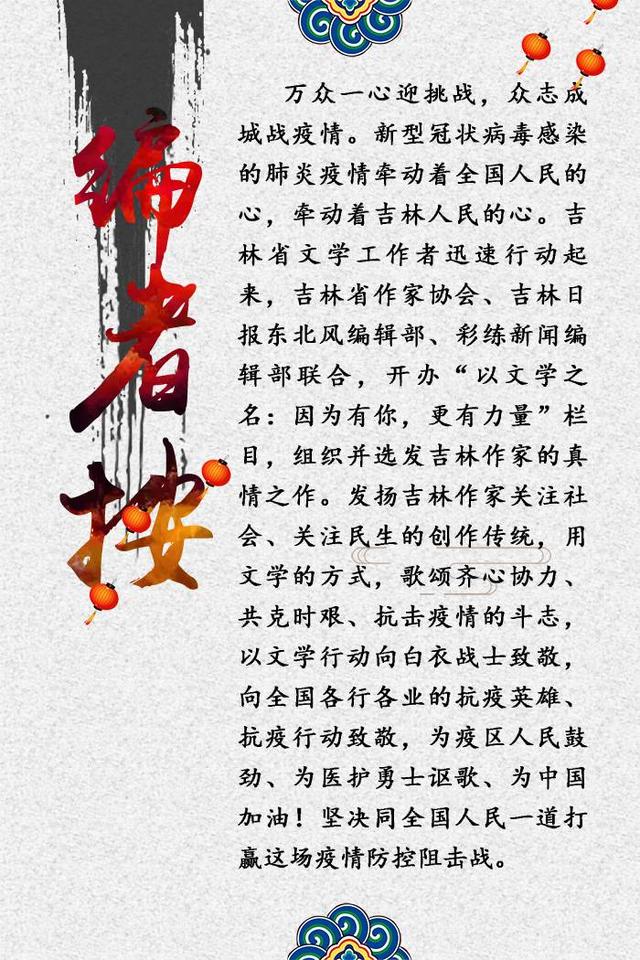 编者按
万众一心迎挑战，众志成
城战疫情。新型冠状病毒感染
的肺炎疫情牵动着全国人民的
心，牵动着吉林人民的心。吉
林省文学工作者迅速行动起
来，吉林省作家协会、吉林日
报东北风编辑部、彩练新闻编
辑部联合，开办“以文学之
名：因为有你，更有力量”栏
目，组织并选发吉林作家的真
情之作。发扬吉林作家关注社
会、关注民生的创作传统，用
文学的方式，歌颂齐心协力、
共克时艰、抗击疫情的斗志，
以文学行动向白衣战士致敬，
向全国各行各业的抗疫英雄、
抗疫行动致敬，为疫区人民鼓
劲、为医护勇士讴歌、为中国
加油！坚决同全国人民一道打
赢这场疫情防控阻击战。